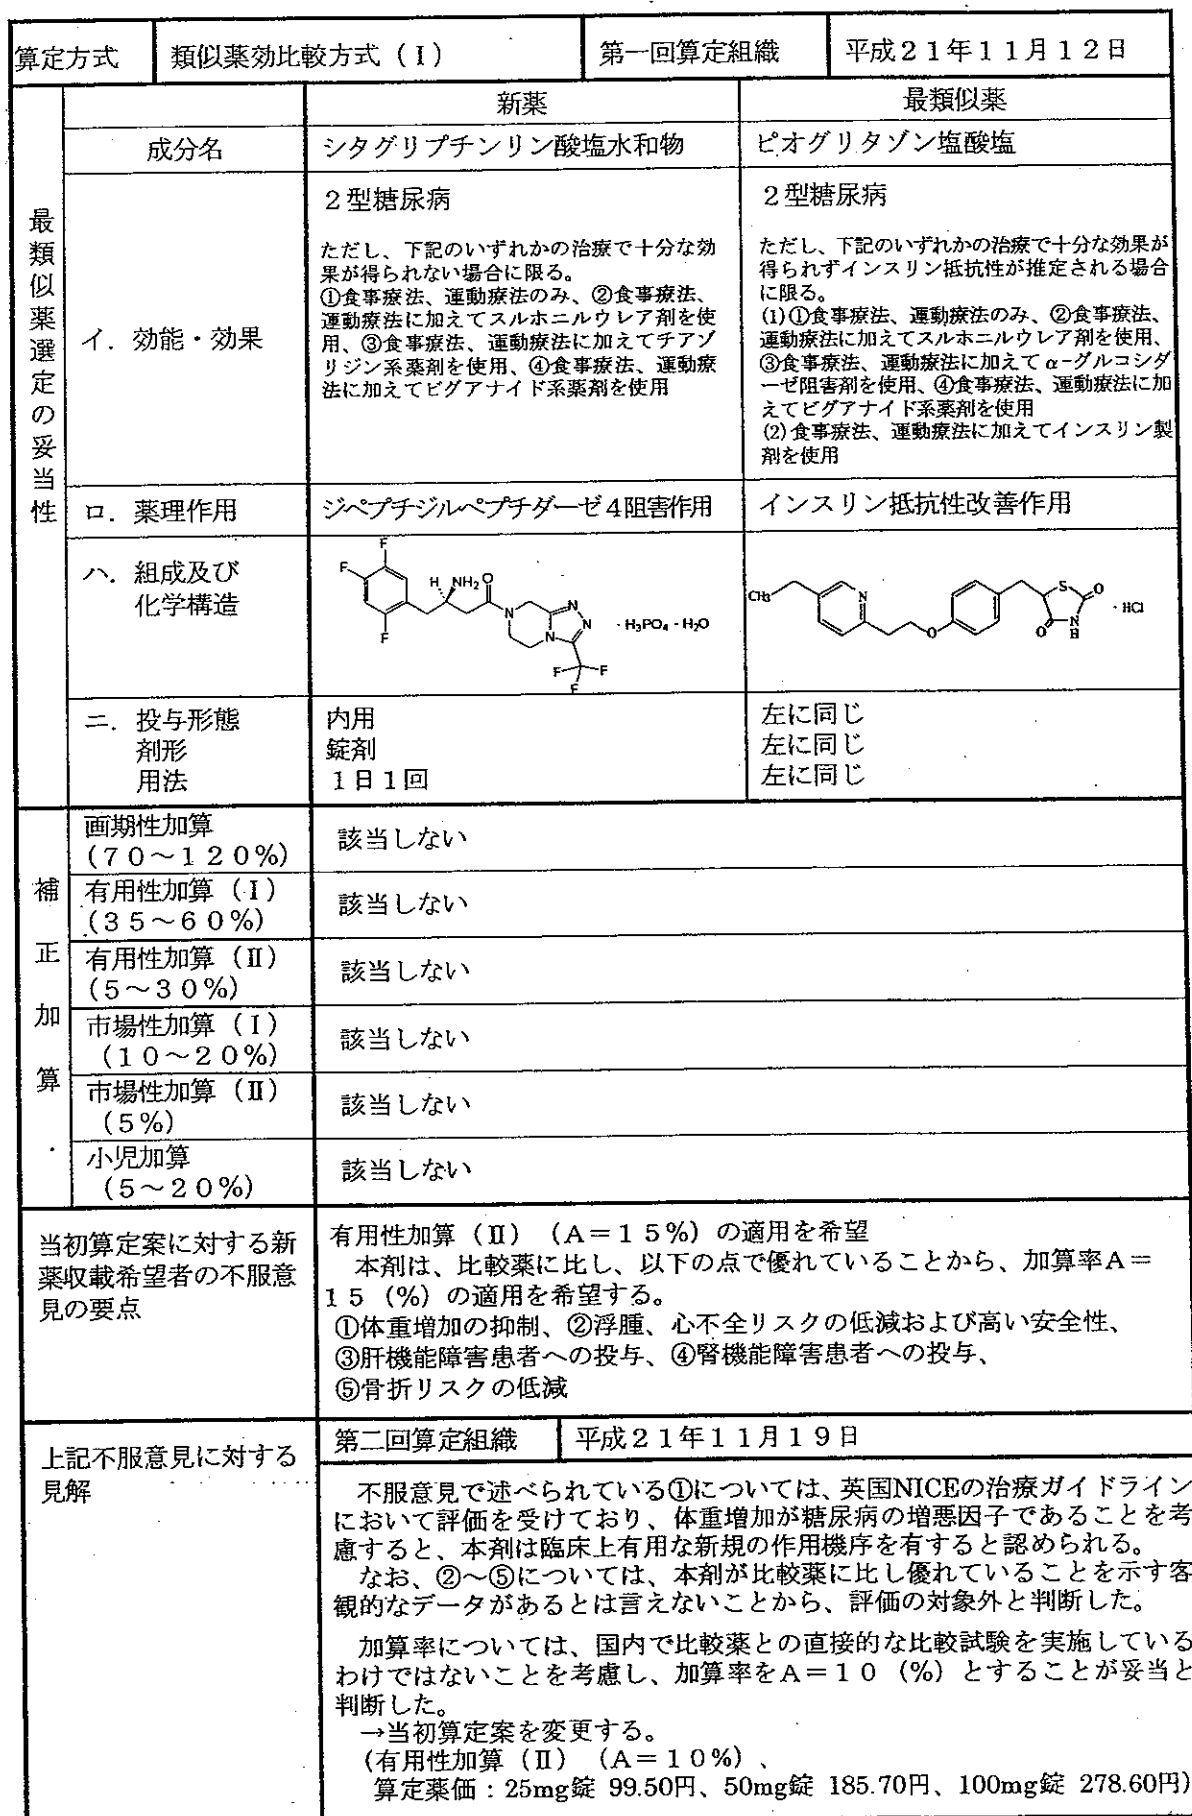 算定方式 類似薬効比較方式（Ⅰ） 第一回算定組織 平成２１年１１月１２日
最類似薬選定の妥当性
新薬 最類似薬
成分名 シタグリプチンリン酸塩水和物 ピオグリタゾン塩酸塩
イ．効能・効果
２型糖尿病
ただし、下記のいずれかの治療で十分な効
果が得られない場合に限る。
①食事療法、運動療法のみ、②食事療法、
運動療法に加えてスルホニルウレア剤を使
用、③食事療法、運動療法に加えてチアゾ
リジン系薬剤を使用、④食事療法、運動療
法に加えてビグアナイド系薬剤を使用
２型糖尿病
ただし、下記のいずれかの治療で十分な効果が
得られずインスリン抵抗性が推定される場合
に限る。
(1)①食事療法、運動療法のみ、②食事療法、
運動療法に加えてスルホニルウレア剤を使用、
③食事療法、運動療法に加えてα-グルコシダ
ーゼ阻害剤を使用、④食事療法、運動療法に加
えてビグアナイド系薬剤を使用
(2)食事療法、運動療法に加えてインスリン製
剤を使用
ロ．薬理作用 ジペプチジルペプチダーゼ４阻害作用 インスリン抵抗性改善作用
ハ．組成及び
化学構造
F
F
F
H NH₂ O
N
N
N
N
F
F
F
・H₃PO₄・H₂O
CH₃
N
O
S
O
O
N
H
・HCl
ニ．投与形態 内用 左に同じ
剤形 錠剤 左に同じ
用法 １日１回 左に同じ
補正加算
画期性加算
（７０～１２０％） 該当しない
有用性加算（Ⅰ）
（３５～６０％） 該当しない
有用性加算（Ⅱ）
（５～３０％） 該当しない
市場性加算（Ⅰ）
（１０～２０％） 該当しない
市場性加算（Ⅱ）
（５％） 該当しない
小児加算
（５～２０％） 該当しない
当初算定案に対する新
薬収載希望者の不服意
見の要点
有用性加算（Ⅱ）（Ａ＝１５％）の適用を希望
本剤は、比較薬に比し、以下の点で優れていることから、加算率Ａ＝
１５（％）の適用を希望する。
①体重増加の抑制、②浮腫、心不全リスクの低減および高い安全性、
③肝機能障害患者への投与、④腎機能障害患者への投与、
⑤骨折リスクの低減
上記不服意見に対する
見解
第二回算定組織 平成２１年１１月１９日
不服意見で述べられている①については、英国NICEの治療ガイドライン
において評価を受けており、体重増加が糖尿病の増悪因子であることを考
慮すると、本剤は臨床上有用な新規の作用機序を有すると認められる。
なお、②～⑤については、本剤が比較薬に比し優れていることを示す客
観的なデータがあるとは言えないことから、評価の対象外と判断した。
加算率については、国内で比較薬との直接的な比較試験を実施している
わけではないことを考慮し、加算率をＡ＝１０（％）とすることが妥当と
判断した。
→当初算定案を変更する。
（有用性加算（Ⅱ）（Ａ＝１０％）、
算定薬価：25mg錠 99.50円、50mg錠 185.70円、100mg錠 278.60円）